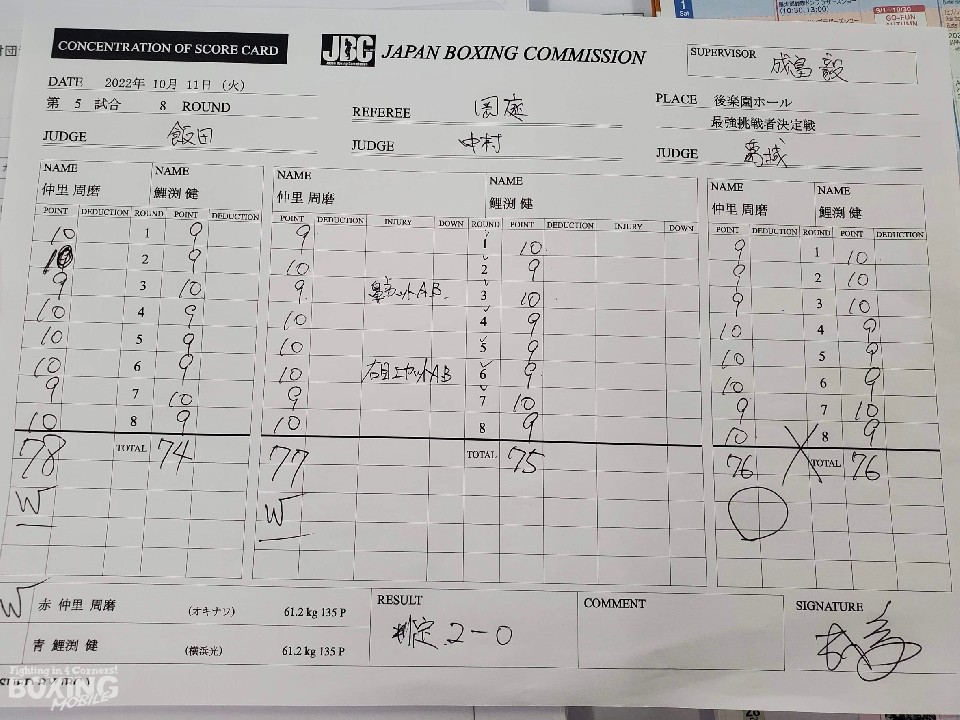 1 Sat
(10:30, 13:00)
9/1~10/30
GO-FUN
AUTUMN
CONCENTRATION OF SCORE CARD
JBC JAPAN BOXING COMMISSION
SUPERVISOR 成富 毅
DATE 2022年 10月 11日 (火)
第 5 試合 8 ROUND
REFEREE 岡庭
PLACE 後楽園ホール
最強挑戦者決定戦
JUDGE 飯田
JUDGE 中村
JUDGE 葛城
NAME NAME NAME NAME NAME NAME
仲里 周磨 鯉渕 健 仲里 周磨 鯉渕 健 仲里 周磨 鯉渕 健
POINT DEDUCTION ROUND POINT DEDUCTION POINT DEDUCTION INJURY DOWN ROUND POINT DEDUCTION INJURY DOWN POINT DEDUCTION ROUND POINT DEDUCTION
10 1 9 9 1 10 9 1 10
10 2 9 10 2 9 9 2 10
9 3 10 9 カットAB 3 10 9 3 10
10 4 9 10 4 9 10 4 9
10 5 9 10 5 9 10 5 9
10 6 9 10 右目上カットAB 6 9 10 6 9
9 7 10 9 7 10 9 7 10
10 8 9 10 8 9 10 8 9
78 TOTAL 74 77 TOTAL 75 76 TOTAL 76
W W
W 赤 仲里 周磨 (オキナワ) 61.2 kg 135 P
青 鯉渕 健 (横浜光) 61.2 kg 135 P
RESULT
判定 2-0
COMMENT
SIGNATURE
Fighting in 4 Corners!
BOXING
MOBILE